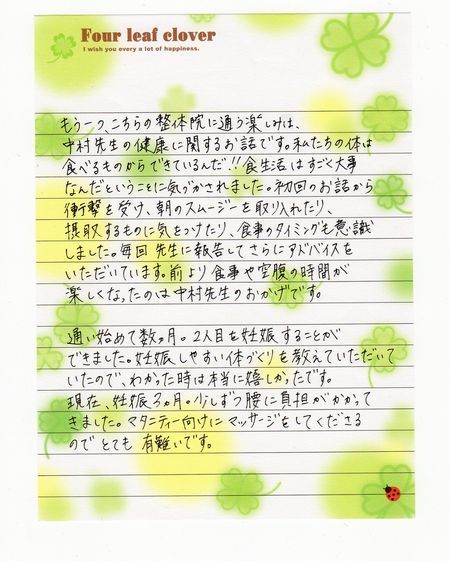 Four leaf clover
I wish you every a lot of happiness.
もう一つ、こちらの整体院に通う楽しみは、
中村先生の健康に関するお話です。私たちの体は
食べるものからできているんだ!!食生活はすごく大事
なんだということに気づかされました。初回のお話から
衝撃を受け、朝のスムージーを取り入れたり、
摂取するものに気をつけたり、食事のタイミングも意識
しました。毎回先生に報告してさらにアドバイスを
いただいています。前より食事や空腹の時間が
楽しくなったのは中村先生のおかげです。
通い始めて数ヶ月。2人目を妊娠することが
できました。妊娠しやすい体づくりを教えていただいて
いたので、わかった時は本当に嬉しかったです。
現在、妊娠3ヶ月。少しずつ腰に負担がかかって
きました。マタニティー向けにマッサージをしてくださる
のでとても有難いです。